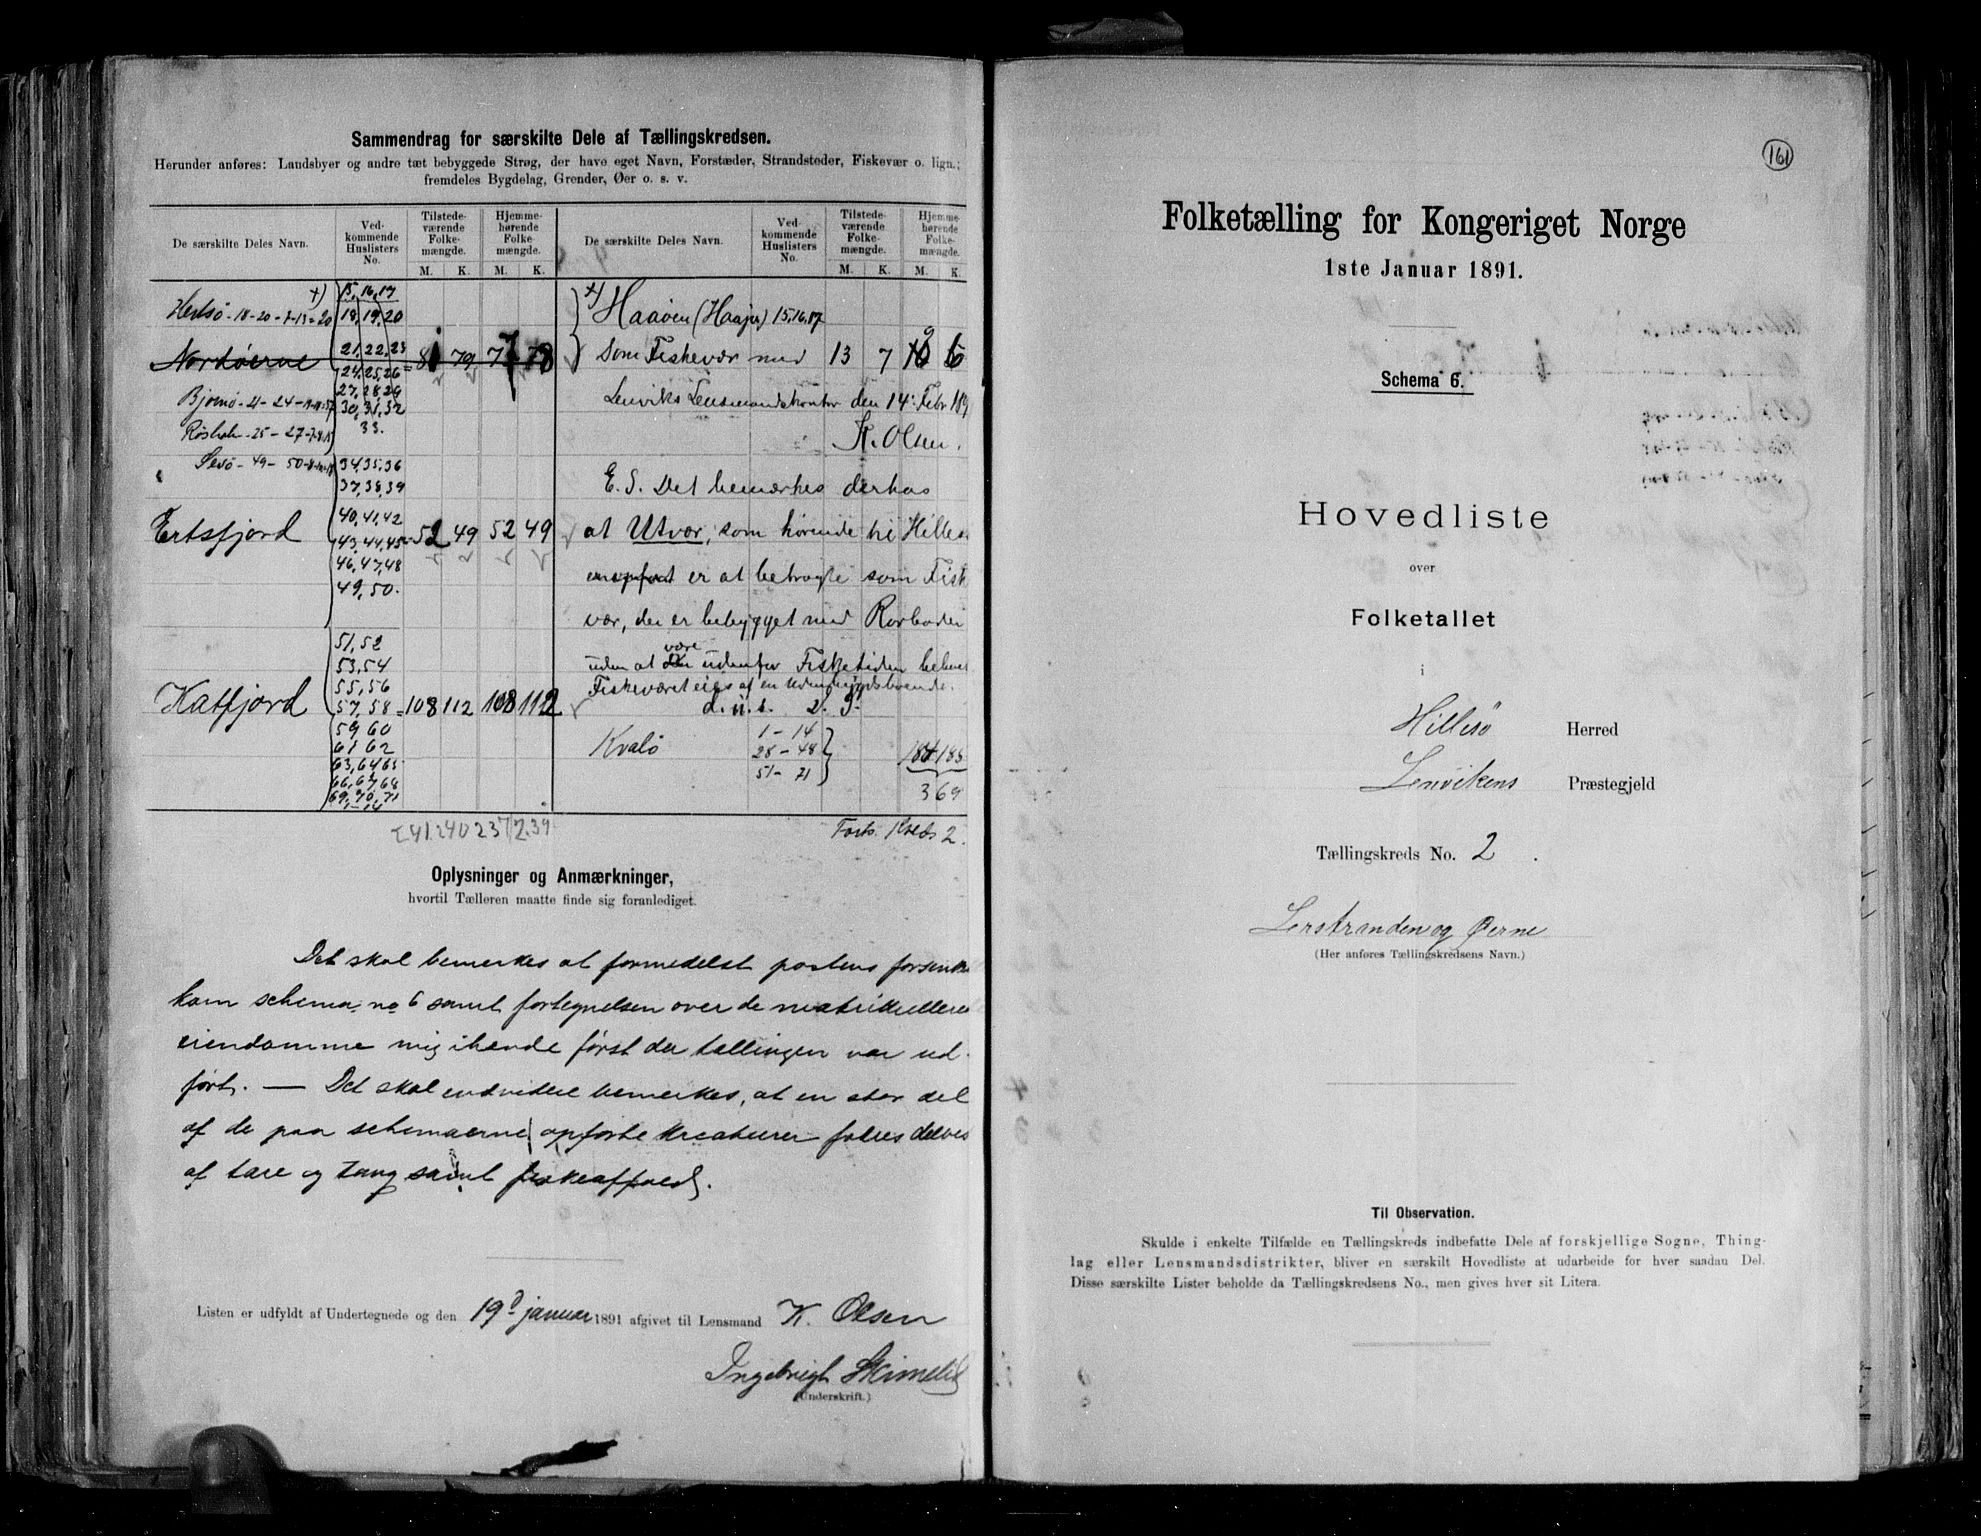 Sammendrag for særskilte Dele af Tællingskredsen.
Herunder anføres: Landsbyer og andre tæt bebyggede Strøg, der have eget Navn, Forstæder, Strandsteder, Fiskevær o. lign.;
fremdeles Bygdelag, Grender, Øer o. s. v.
De særskilte Deles Navn. Ved-kommende Huslisters No. Tilstede-værende Folke-mængde. Hjemme-hørende Folke-mængde. De særskilte Deles Navn. Ved-kommende Huslisters No. Tilstede-værende Folke-mængde. Hjemme-hørende Folke-mængde.
M. K. M. K. M. K. M. K.
+) 15, 16, 17
Hertsø - 18 - 20 - 7 - 13 = 20 18, 19, 20
Nordøerne 21, 22, 23 81 79 77 78
24, 25, 26
Bjørnø - 21 - 24 27, 28, 29
30, 31, 32
Røsholm - 25 - 27 33.
Sesø - 49 - 50 34, 35, 36
37, 38, 39
40, 41, 42
Ertsfjord 43, 44, 45 52 49 52 49
46, 47, 48
49, 50.
51, 52
53, 54
55, 56
Katfjord 57, 58 = 108 112 108 112
59, 60
61 62
63, 64 65
66, 67, 68
69, 70, 71
1-14
241. 240 237 239
+) Haaøen (Haaja) 15, 16, 17
som Fiskevær med 13 7 9 6
Lenviks Lensmandskontor den 14. Febr 189
K. Olsen.
E. S. Det bemærkes derhos
at Utvær, som hørende til Hilles
er at betragte som Fisk
vær, der er bebygget med Rorboder
uden at være udenfor Fisketiden
Fiskeværet eies af en Udenbygdsboende.
d. u. s.
Kvalø 1 - 14
28 - 48 184 185
51 - 71
369
Forts. Kreds 2.
Oplysninger og Anmærkninger,
hvortil Tælleren maatte finde sig foranlediget.
Det skal bemerkes at formedelst postens forsink
kom schema no 6 samt fortegnelsen over de matrikullere
eiendomme mig ihænde først da tællingen var ud-
ført. — Det skal endvidere bemerkes, at en stor del
af de paa schemaerne opførte kreaturer fødres delvis
af tare og tang samt fiskeaffald.
Listen er udfyldt af Undertegnede og den 19d januar 1891 afgivet til Lensmand K. Olsen
Ingebrigt Skimelid
(Underskrift.)
161
Folketælling for Kongeriget Norge
1ste Januar 1891.
Schema 6.
Hovedliste
over
Folketallet
i
Hillesø Herred
Lenvikens Præstegjeld
Tællingskreds No. 2.
Lerstranden og Øerne
(Her anføres Tællingskredsens Navn.)
Til Observation.
Skulde i enkelte Tilfælde en Tællingskreds indbefatte Dele af forskjellige Sogne, Thing-
lag eller Lensmandsdistrikter, bliver en særskilt Hovedliste at udarbeide for hver saadan Del.
Disse særskilte Lister beholde da Tællingskredsens No., men gives hver sit Litera.